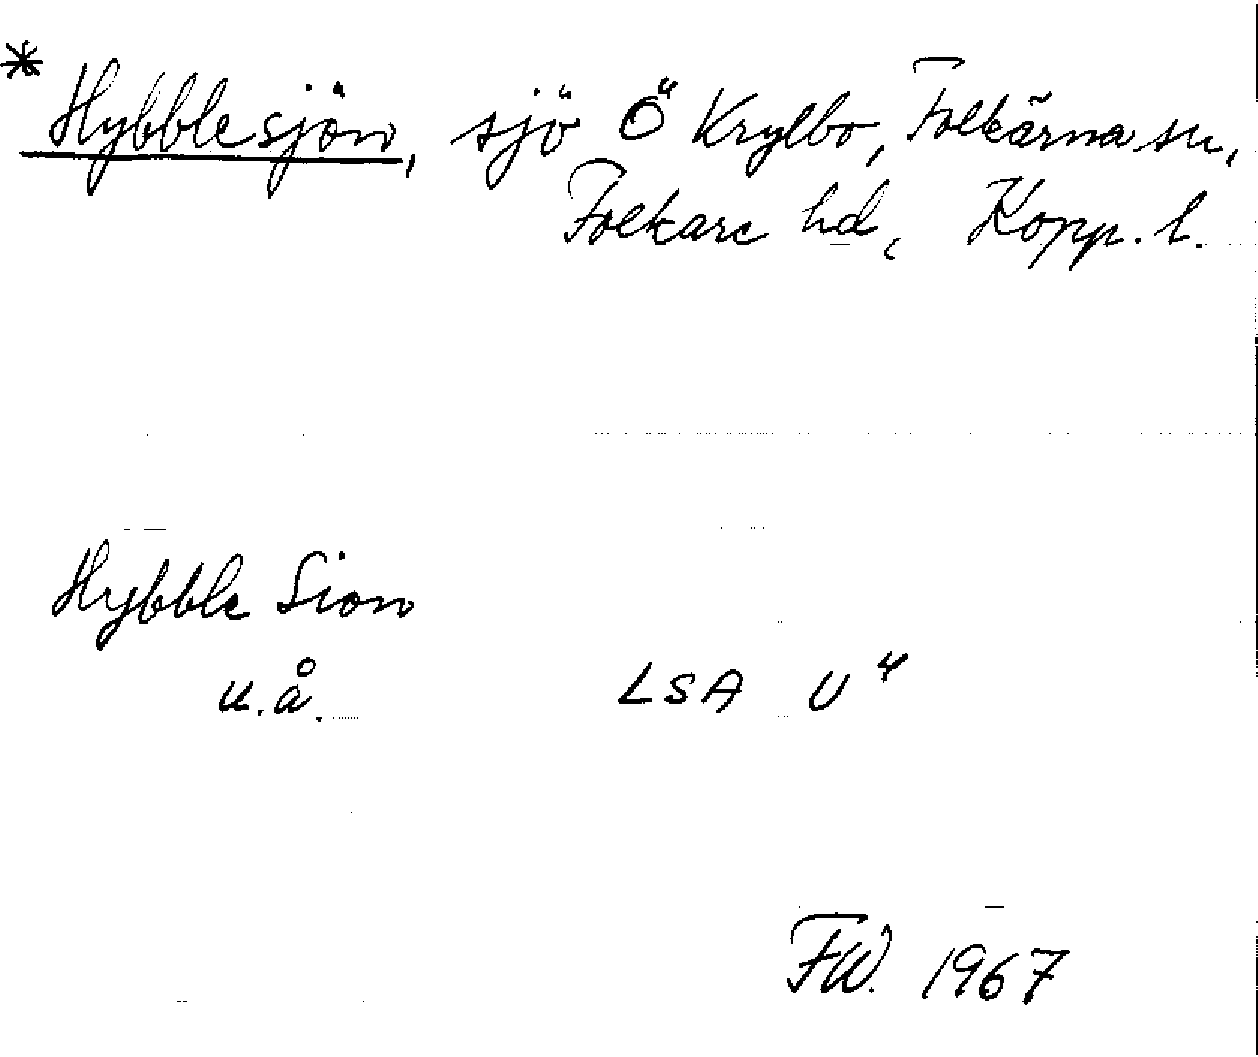 * Hybblesjön, sjö Ö Krylbo, Folkärna sn,
Folkare hd, Kopp. l.
Hybble Sion
u.å. LSA U 4
FW. 1967